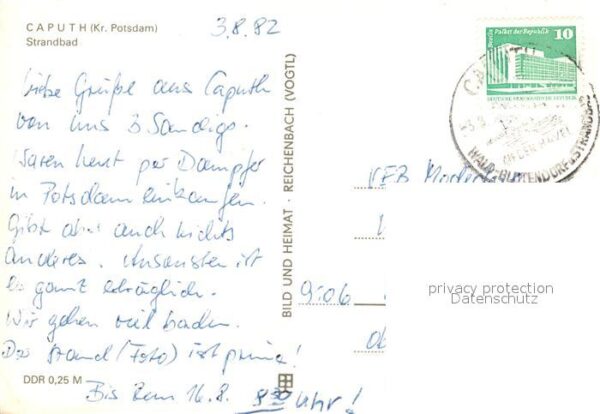 CAPUTH (Kr. Potsdam)
Strandbad
3.8.82
Liebe Grüße aus Caputh
von uns 3 Sandigo.
Waren heut per Dampfer
in Potsdam einkaufen.
Gibt aber auch nichts
anderes. Ansonsten ist
es ganz erträglich.
Wir gehen viel baden.
Der Strand (Foto) ist prima!
Bis zum 16.8. 8³⁰ Uhr!
DDR 0,25 M
BILD UND HEIMAT · REICHENBACH (VOGTL)
Berlin Palast der Republik
10
DEUTSCHE DEMOKRATISCHE REPUBLIK
CAPUTH
AN DER HAVEL
WALD-BLÜTENDORF&STRANDBAD
VEB
9106
privacy protection
Datenschutz